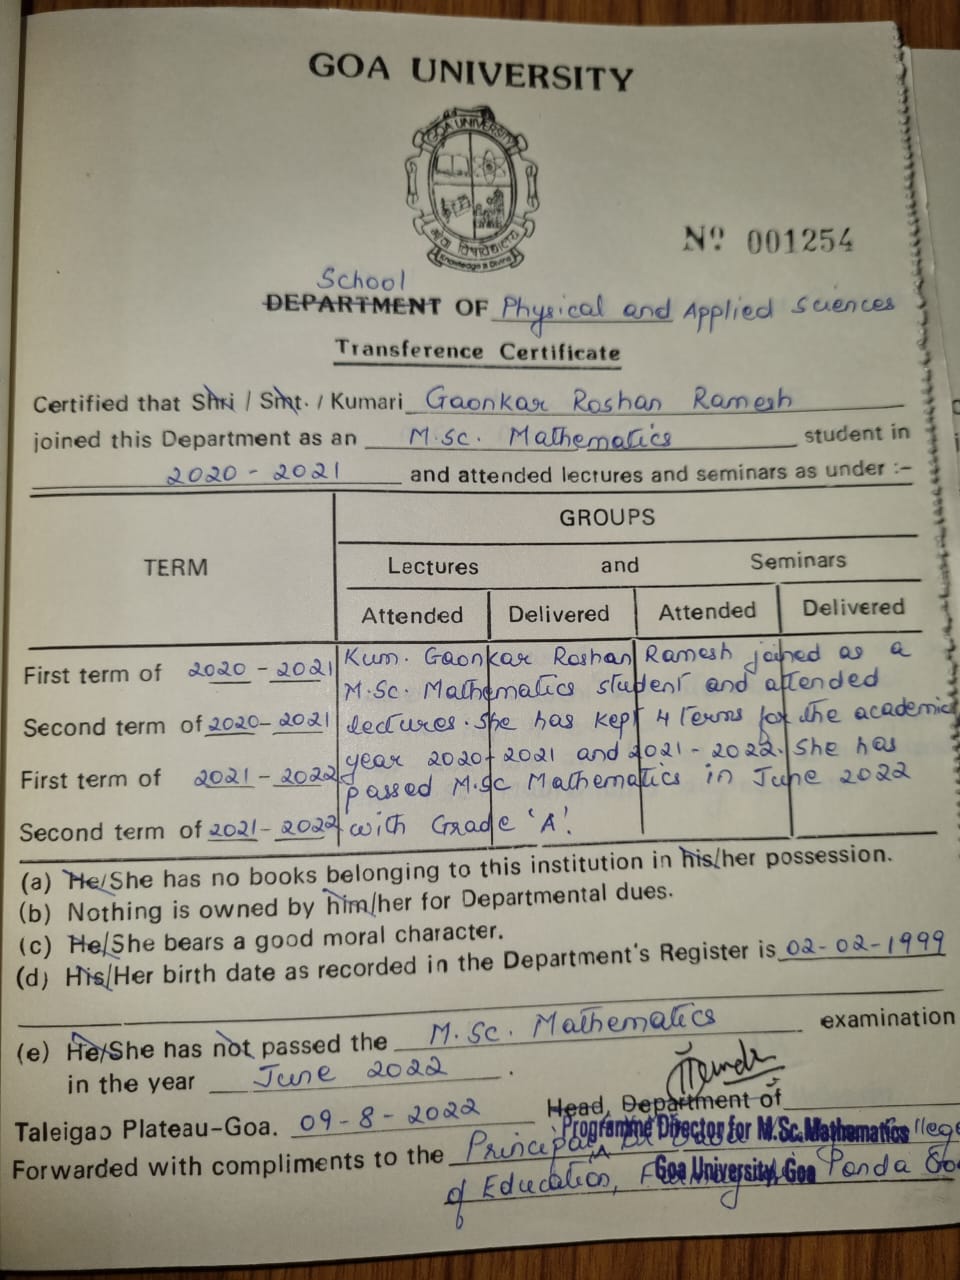 GOA UNIVERSITY
GOA UNIVERSITY
Knowledge is Divine
Nº 001254
School
DEPARTMENT OF Physical and Applied Sciences
Transference Certificate
Certified that Shri / Smt. / Kumari Gaonkar Roshan Ramesh
joined this Department as an M.Sc. Mathematics student in
2020 - 2021 and attended lectures and seminars as under :-
GROUPS
TERM Lectures and Seminars
Attended Delivered Attended Delivered
First term of 2020 - 2021
Second term of 2020- 2021
First term of 2021 - 2022
Second term of 2021- 2022
Kum. Gaonkar Roshan Ramesh joined as a
M.Sc. Mathematics student and attended
lectures. She has kept 4 terms for the academic
year 2020-2021 and 2021-2022. She has
passed M.Sc Mathematics in June 2022
with Grade 'A'.
(a) He/She has no books belonging to this institution in his/her possession.
(b) Nothing is owned by him/her for Departmental dues.
(c) He/She bears a good moral character.
(d) His/Her birth date as recorded in the Department's Register is 02-02-1999
(e) He/She has not passed the M.Sc. Mathematics examination
in the year June 2022.
Head, Department of
Taleigao Plateau-Goa. 09-8-2022
Programme Director for M.Sc. Mathematics
Forwarded with compliments to the Principal
Goa University, Goa
of Education, Ponda Goa